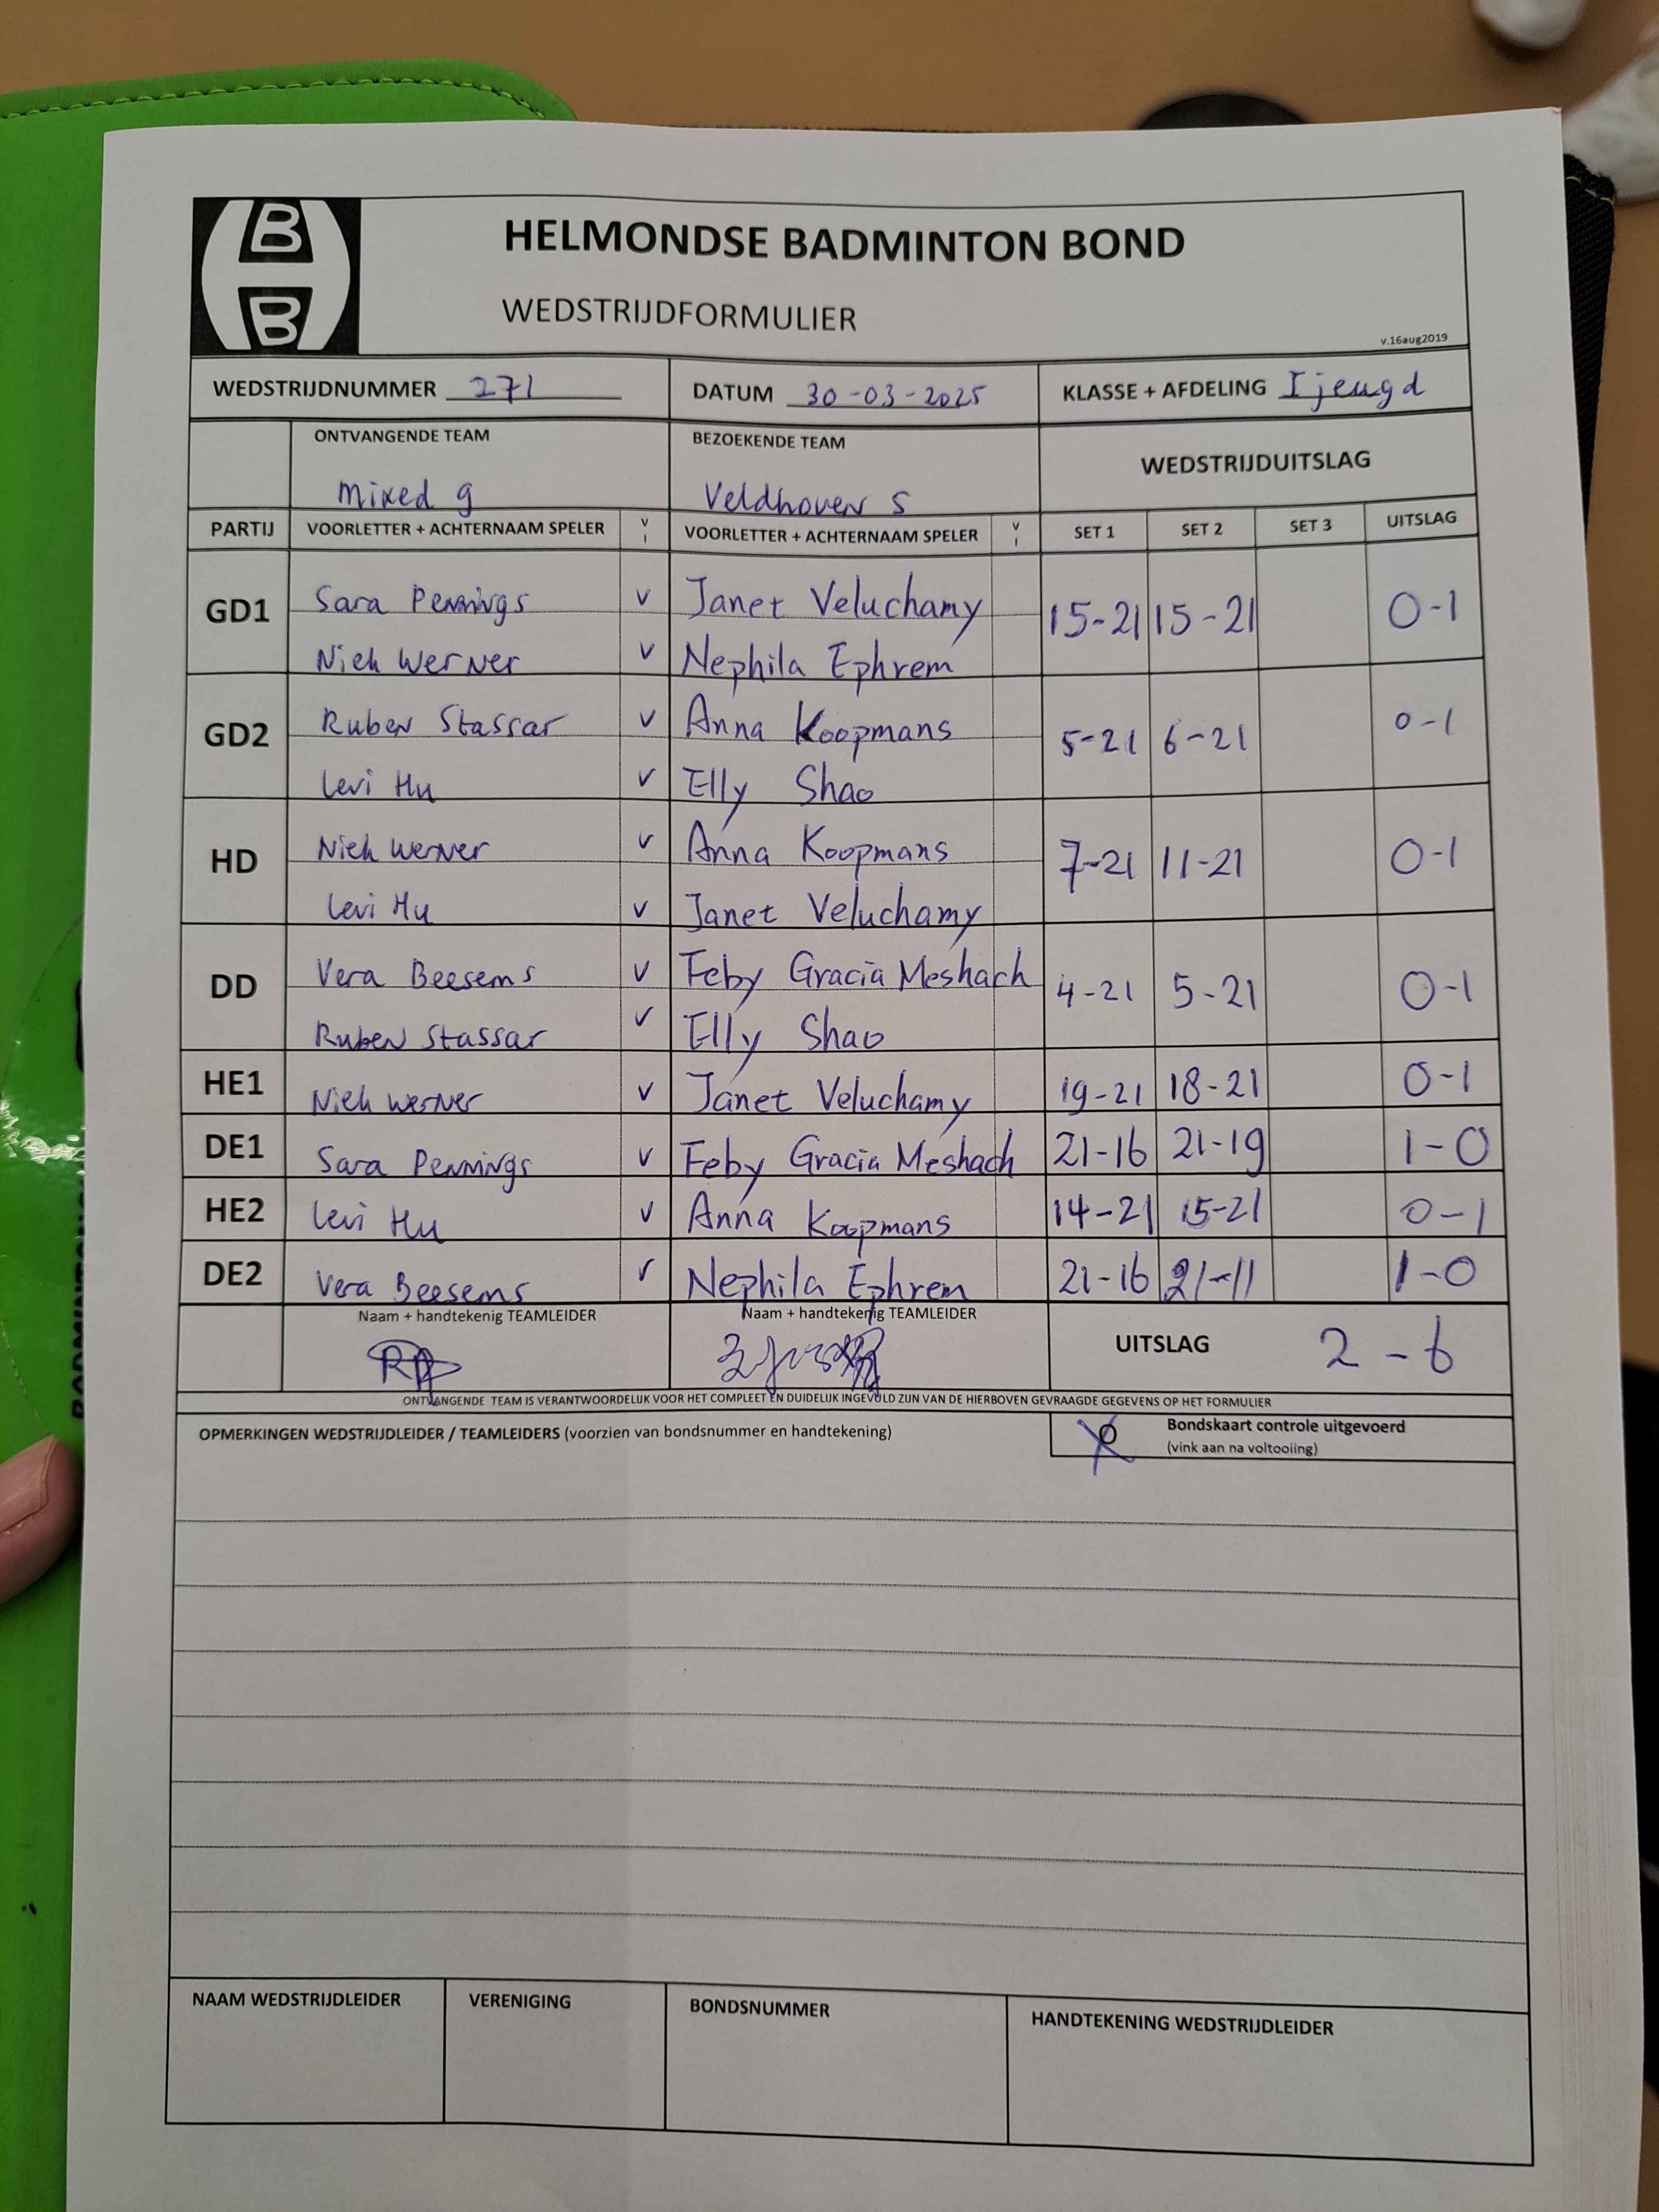 HELMONDSE BADMINTON BOND
WEDSTRIJDFORMULIER
v.16aug2019
WEDSTRIJDNUMMER 271 DATUM 30-03-2025 KLASSE + AFDELING I jeugd
ONTVANGENDE TEAM BEZOEKENDE TEAM WEDSTRIJDUITSLAG
Mixed 9 Veldhoven 5
PARTIJ VOORLETTER + ACHTERNAAM SPELER V I VOORLETTER + ACHTERNAAM SPELER V I SET 1 SET 2 SET 3 UITSLAG
GD1 Sara Pennings v Janet Veluchamy 15-21 15-21 0-1
Niek Werner v Nephila Ephrem
GD2 Ruben Stassar v Anna Koopmans 5-21 6-21 0-1
Levi Hu v Elly Shao
HD Niek Werner v Anna Koopmans 7-21 11-21 0-1
Levi Hu v Janet Veluchamy
DD Vera Beesems v Feby Gracia Meshach 4-21 5-21 0-1
Ruben Stassar v Elly Shao
HE1 Niek Werner v Janet Veluchamy 19-21 18-21 0-1
DE1 Sara Pennings v Feby Gracia Meshach 21-16 21-19 1-0
HE2 Levi Hu v Anna Koopmans 14-21 15-21 0-1
DE2 Vera Beesems v Nephila Ephrem 21-16 21-11 1-0
Naam + handtekenig TEAMLEIDER Naam + handtekenig TEAMLEIDER
UITSLAG 2-6
ONTVANGENDE TEAM IS VERANTWOORDELIJK VOOR HET COMPLEET EN DUIDELIJK INGEVULD ZIJN VAN DE HIERBOVEN GEVRAAGDE GEGEVENS OP HET FORMULIER
OPMERKINGEN WEDSTRIJDLEIDER / TEAMLEIDERS (voorzien van bondsnummer en handtekening)
Bondskaart controle uitgevoerd
(vink aan na voltooiing)
NAAM WEDSTRIJDLEIDER VERENIGING BONDSNUMMER HANDTEKENING WEDSTRIJDLEIDER